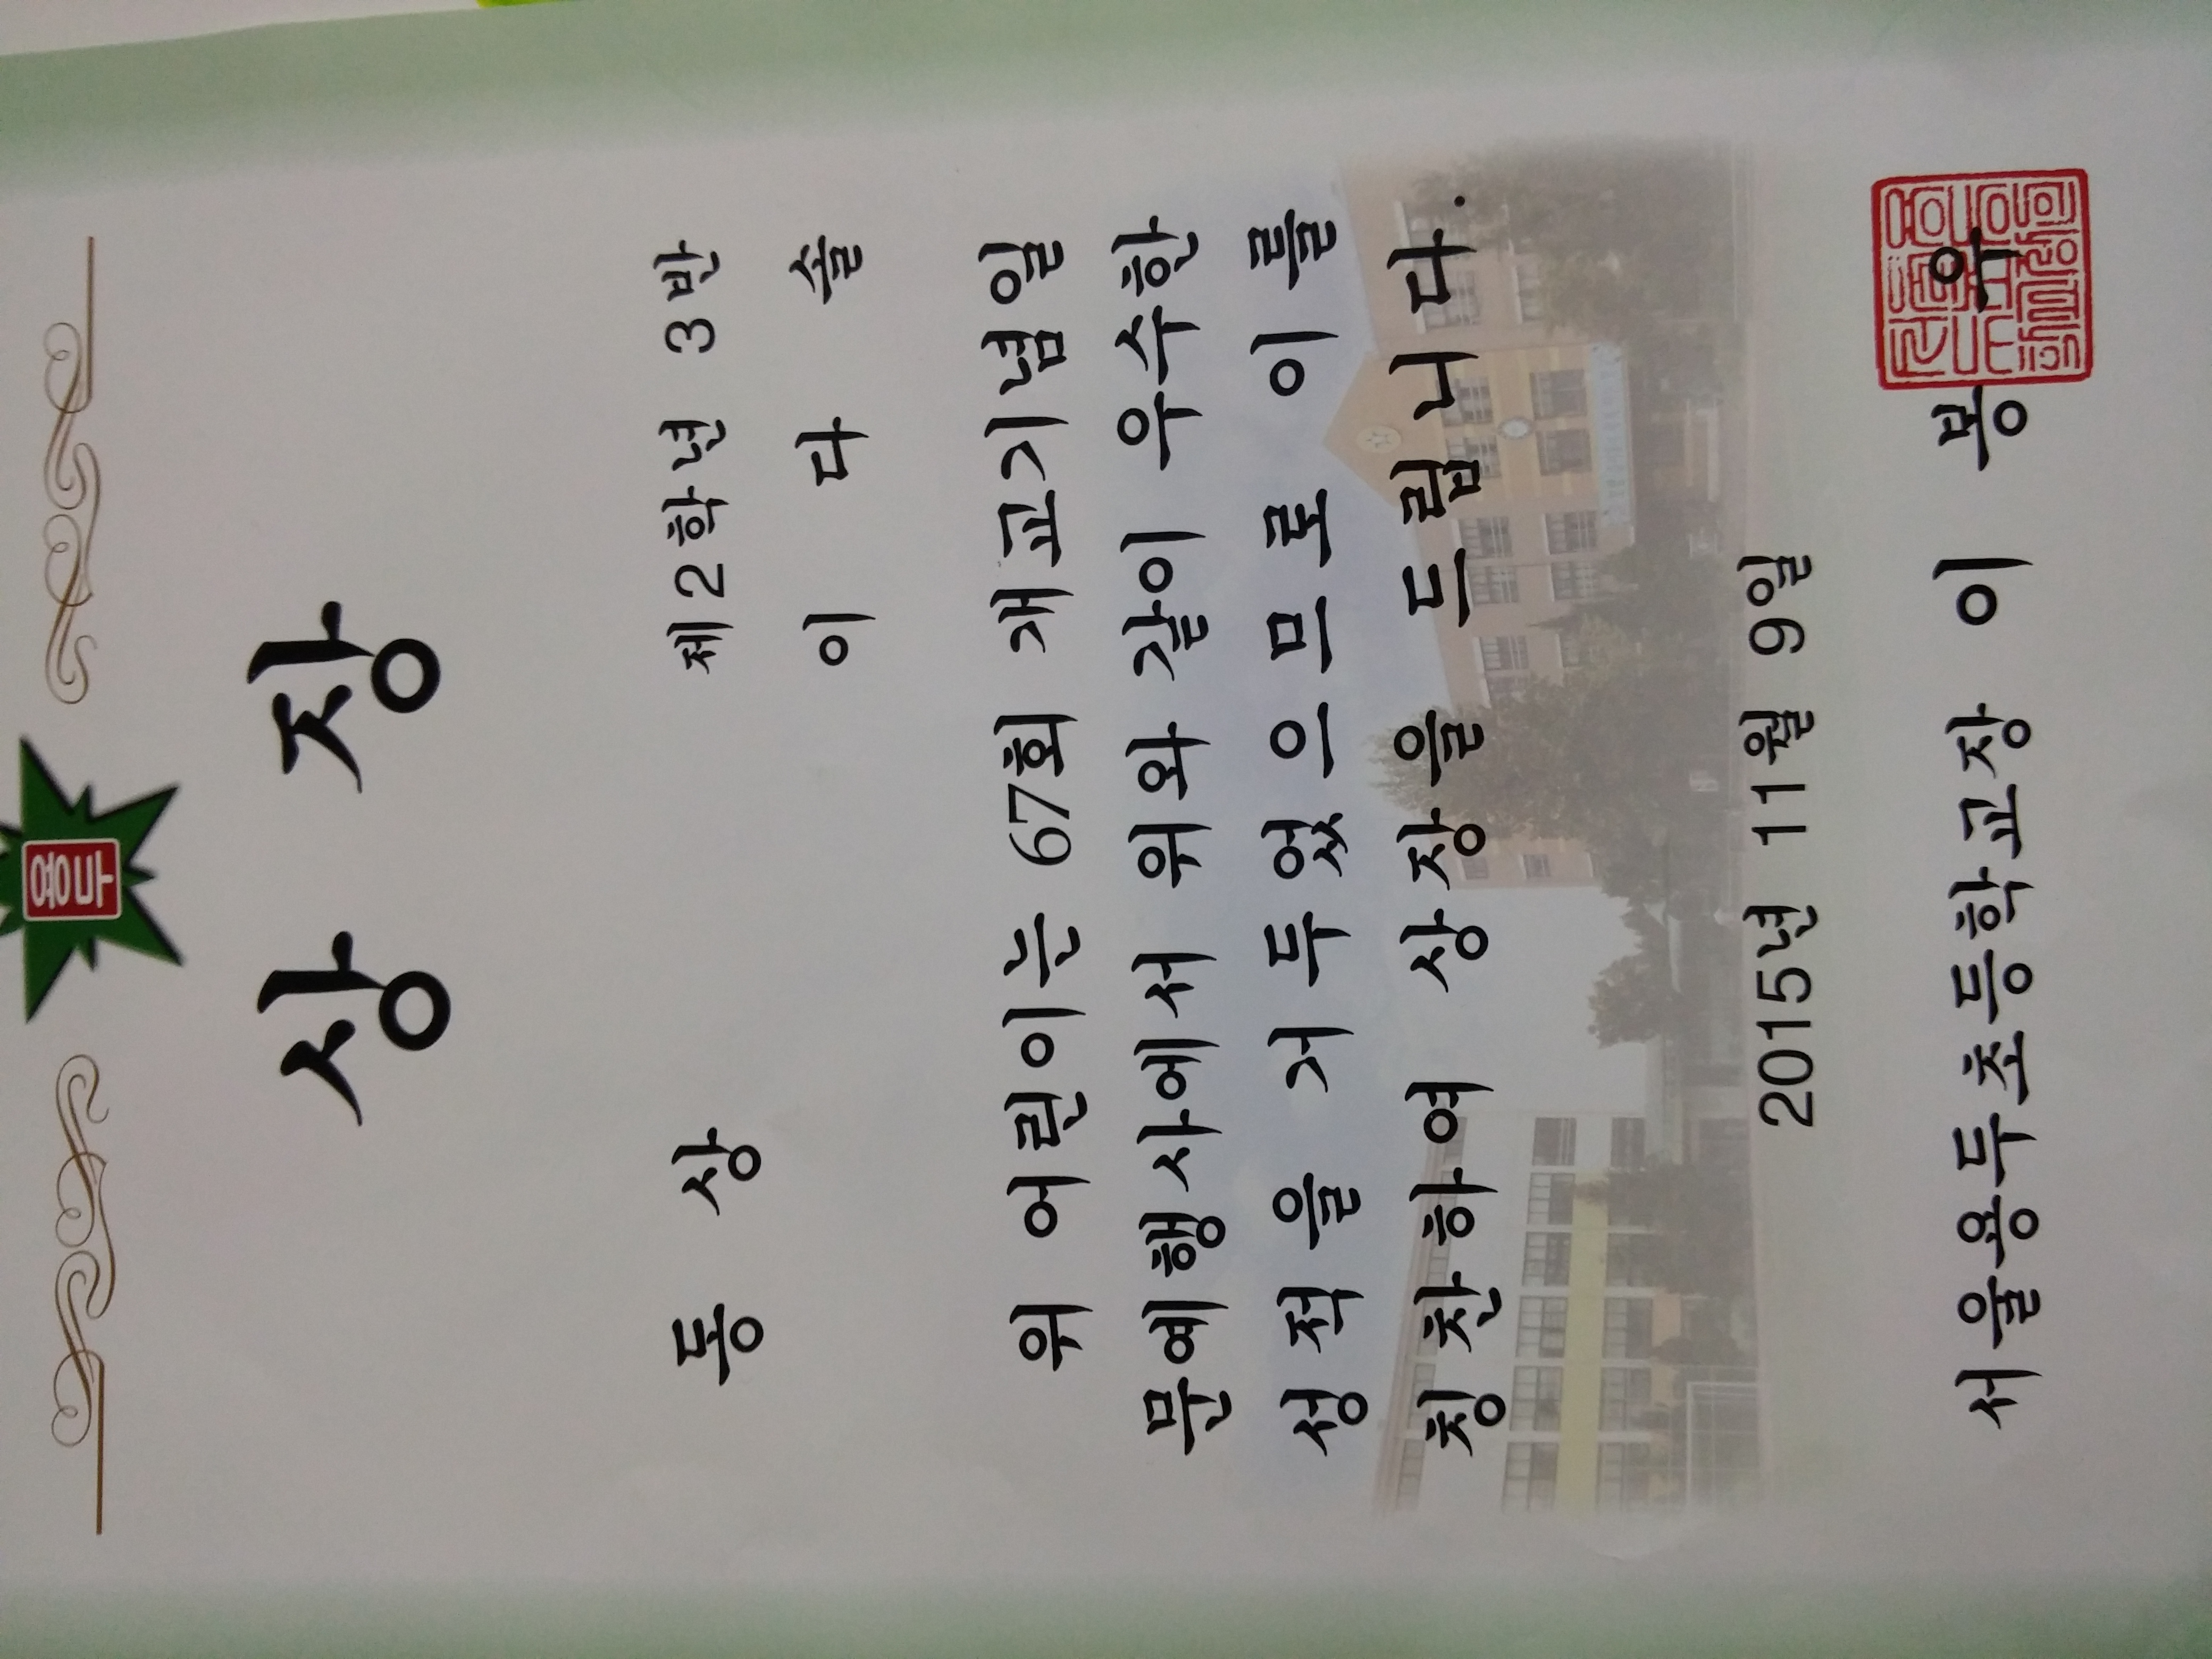 용두
상 장
동 상
제2학년 3반
이 다 솔
위 어린이는 67회 개교기념일
문예행사에서 위와 같이 우수한
성적을 거두었으므로 이를
칭찬하여 상장을 드립니다.
2015년 11월 9일
서울용두초등학교장 이 봉 우